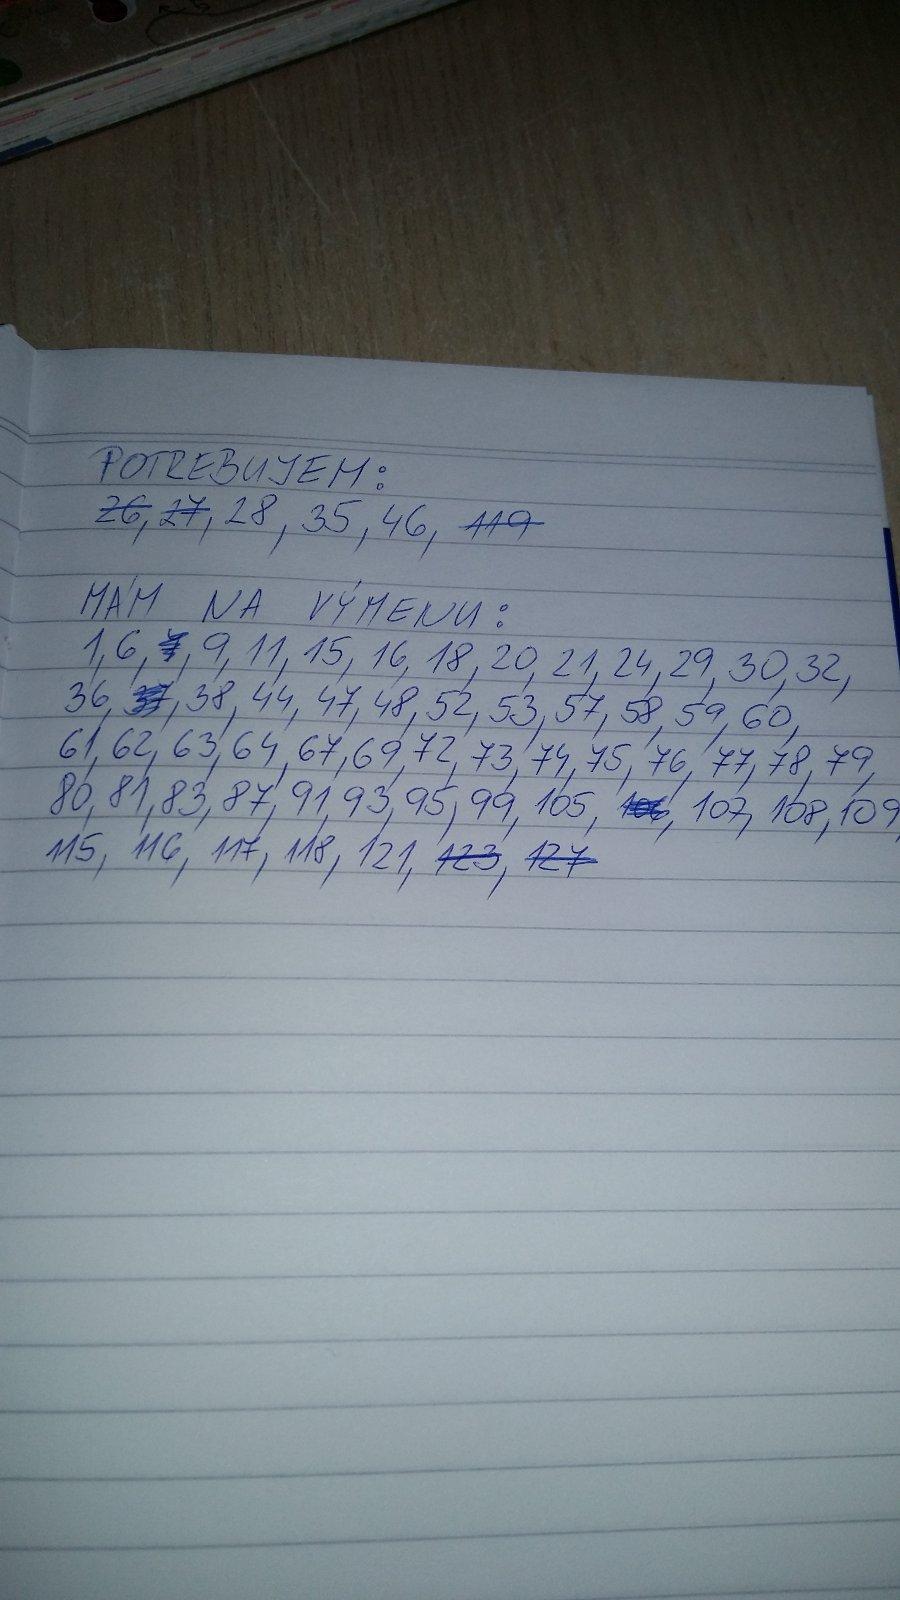 POTREBUJEM:
26, 27, 28, 35, 46, 119
MÁM NA VÝMENU:
1, 6, 7, 9, 11, 15, 16, 18, 20, 21, 24, 29, 30, 32,
36, 37, 38, 44, 47, 48, 52, 53, 57, 58, 59, 60,
61, 62, 63, 64, 67, 69, 72, 73, 74, 75, 76, 77, 78, 79,
80, 81, 83, 87, 91, 93, 95, 99, 105, 106, 107, 108, 109,
115, 116, 117, 118, 121, 123, 127